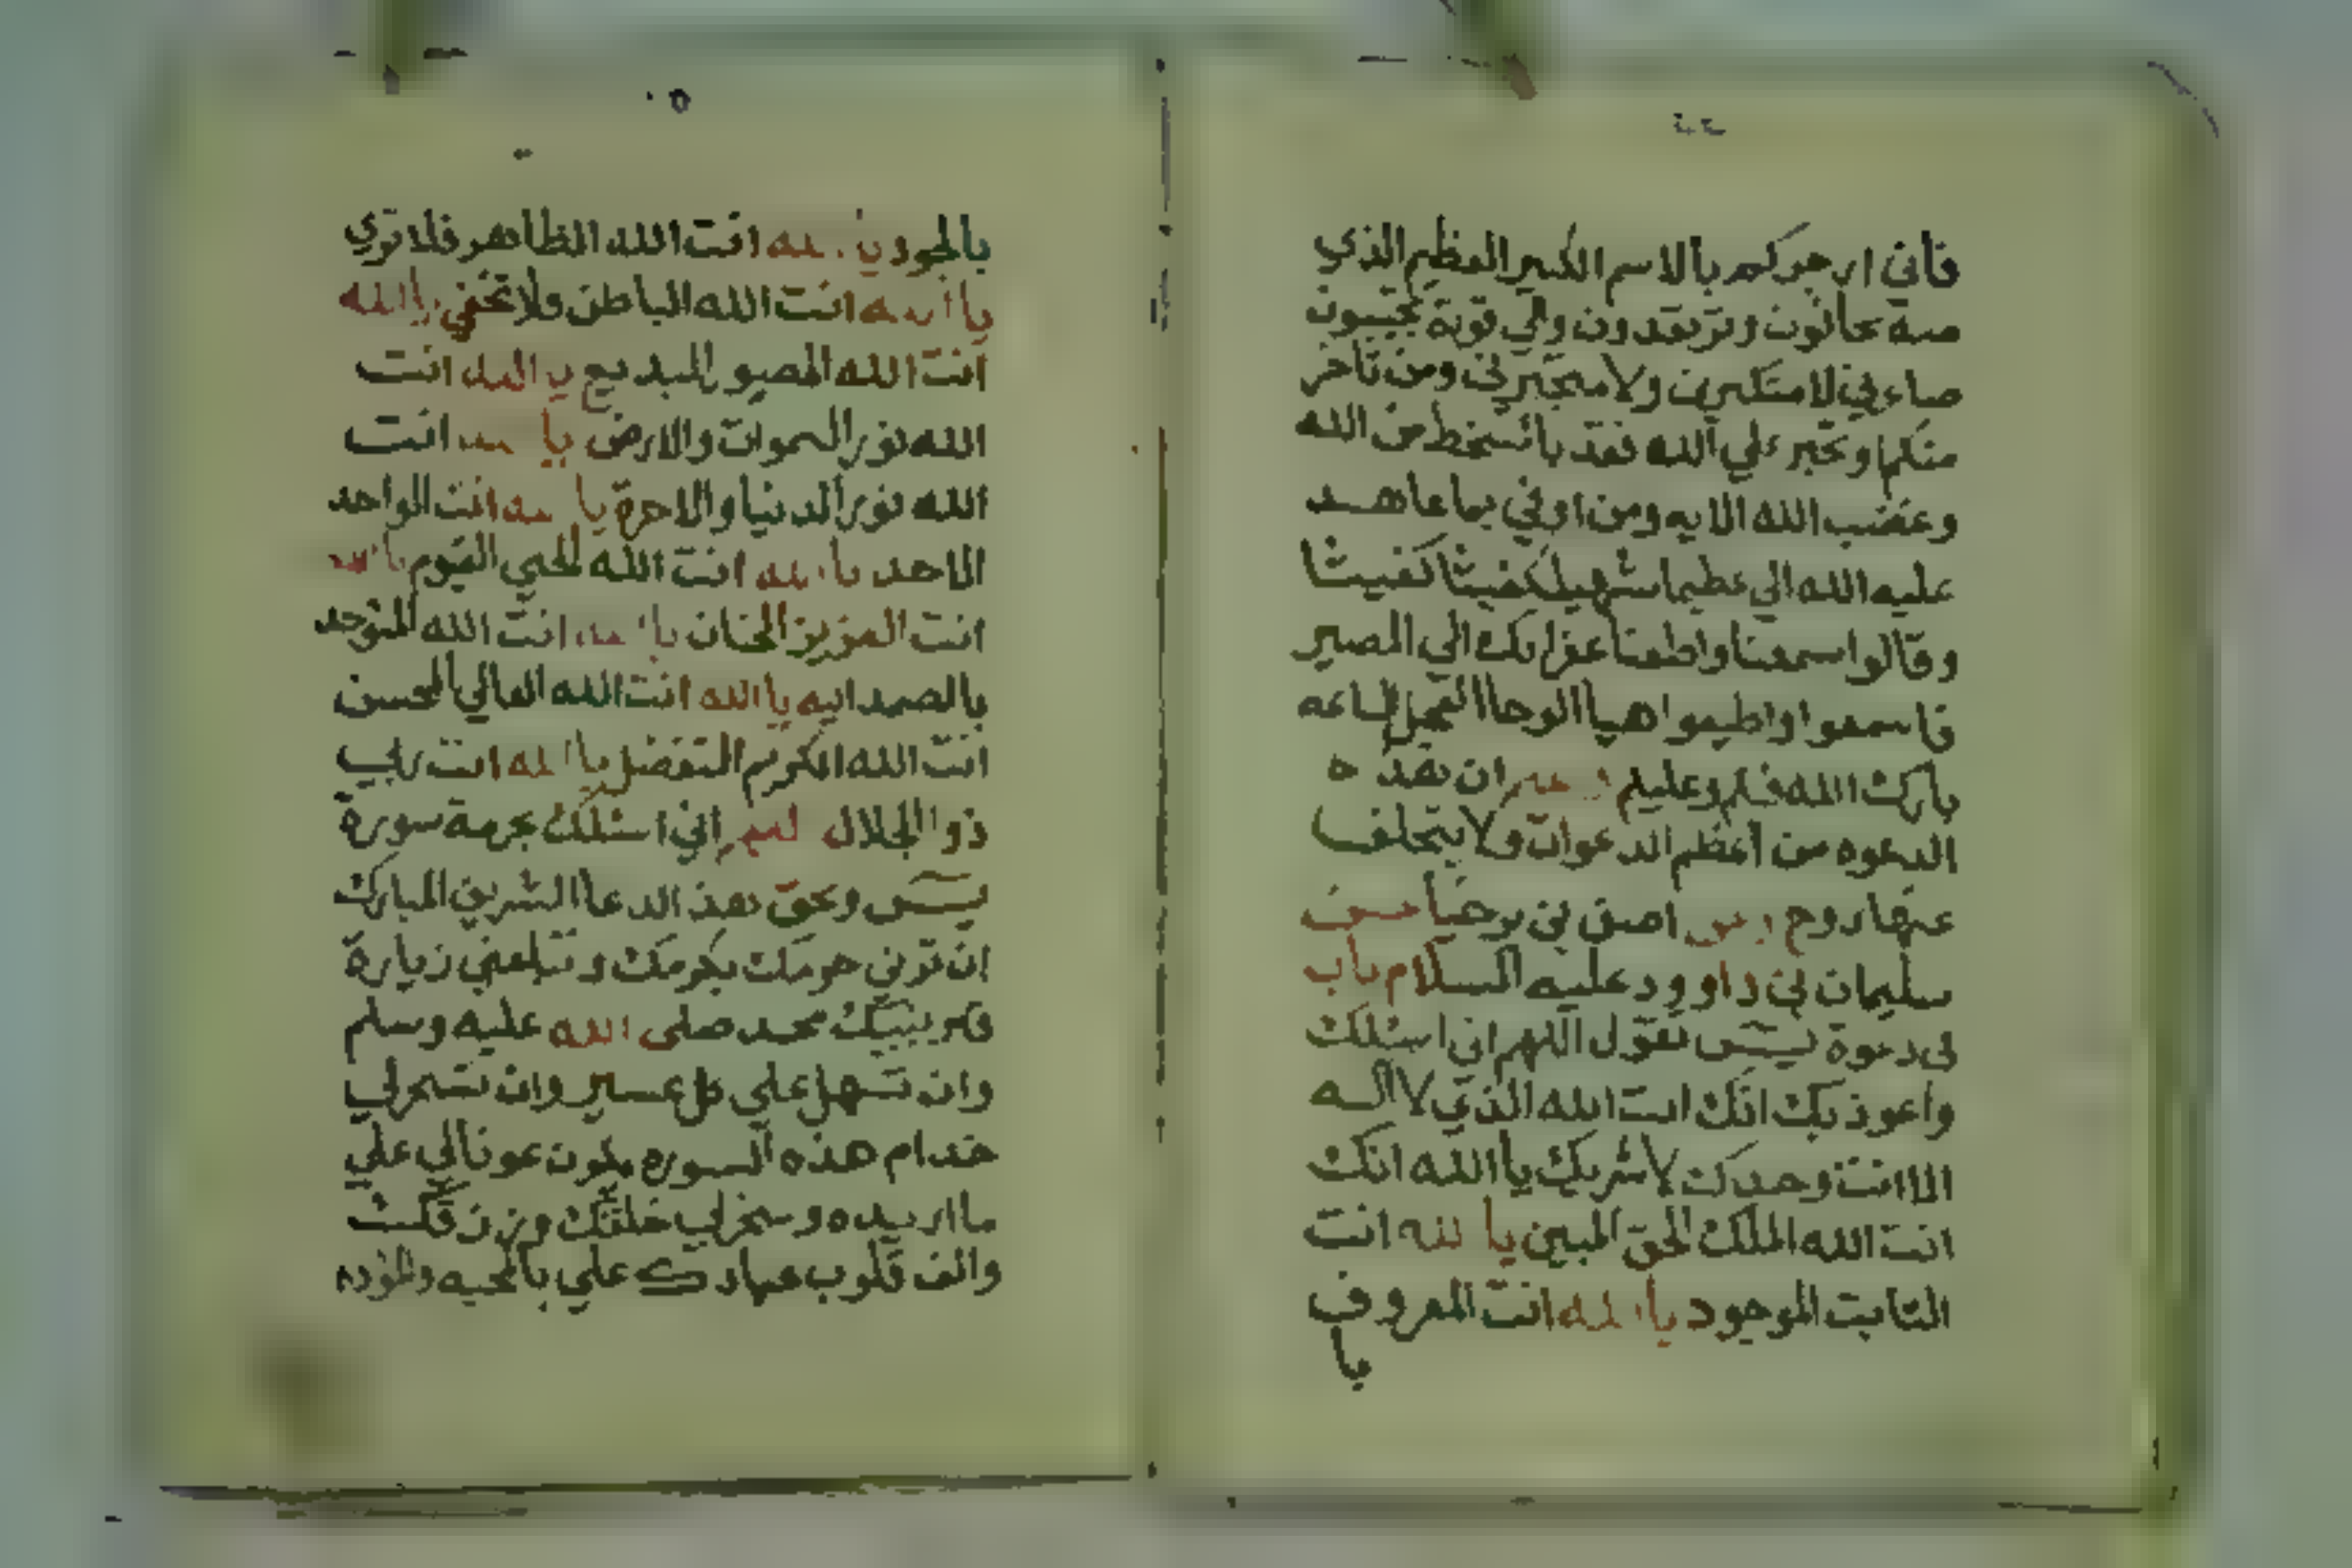 فاني ازجركم بالاسم الكبير العظيم الذي
منه تخافون وترتعدون والي
ولا ومن تاخر
منكم وتجبر علي الله فقد با بسخط من الله
وغضب الله الايه ومن اوفي بما عاهد
عليه الله الي عظيما
وقالوا سمعنا واطعنا غفرانك الي المصير
فاسمعوا واطيعوا هيا الوحا العجل الساعه
بارك الله فيكم وعليكم ان هذه
الدعوه من اعظم الدعوات ولا يتخلف
عنها روح اصف بن برخيا
سليمان بن داوود عليه السلام باب
في دعوة يس تقول اللهم اني اسئلك
واعوذ بك انك انت الله الذي لا اله
الا انت وحدك لا شريك يا الله انك
انت الله الملك الحق المبين يا الله انت
الثابت الموجود يا الله انت المعروف
يا
بالجود يا الله انت الله الظاهر فلا تري
يا الله انت الله الباطن ولا تخفي يا الله
انت الله المصور البديع يا الله انت
الله نور السموات والارض يا الله انت
الله نور الدنيا والاخرة يا الله انت الواحد
الاحد يا الله انت الله الحي القيوم يا الله
انت العزيز الحنان يا الله انت الله المتوحد
بالصمد ايه يا الله انت الله العالي المحسن
انت الله الكريم المتفضل يا الله انت ربي
ذو الجلال اللهم اني اسئلك بحرمة سورة
يس وبحق هذ الدعا الشريف المبارك
ان ترني حرمك بكرمك وتبلغني زيارة
قبر نبيك محمد صلى الله عليه وسلم
وان تسهل علي كل عسير وان تسخر لي
خدام هذه السوره يكون عونا لي علي
ما اريده وسخر لي خلقك
والف قلوب عبادك علي بالمحبه والموده